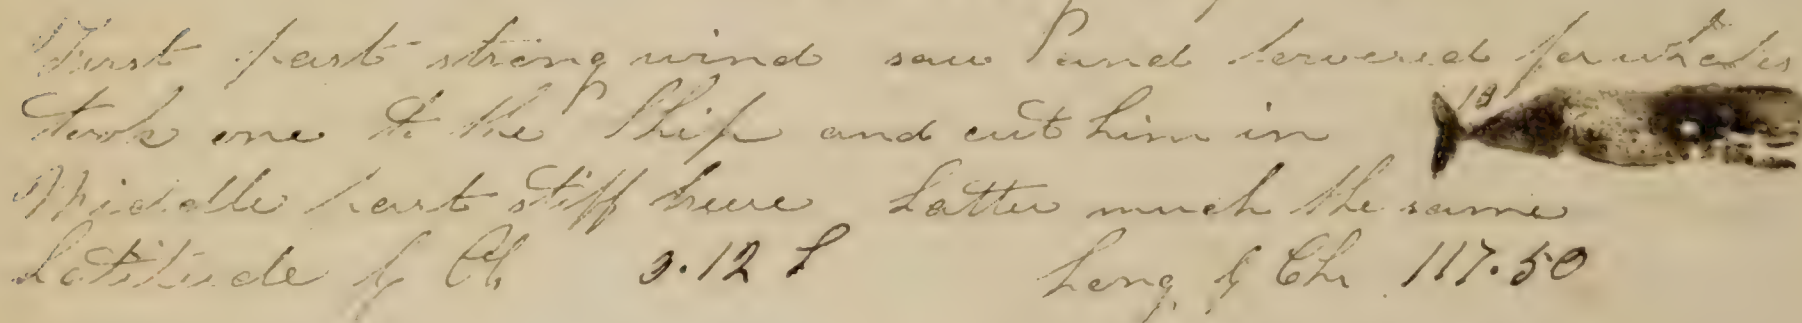 First part strong wind saw Sperm and lowered for whales
took one to the Ship and cut him in 18
Middle part stiff breeze Latter much the same
Latitude by Ob 3.12 S Long by Chr 117.50